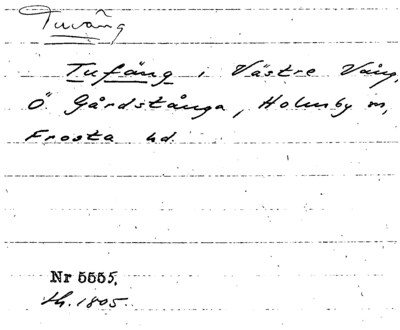 Tuvång
Tufäng i Västre Vång,
Ö Gårdstånga, Holmby sn,
Frosta hd.
Nr 5555.
sh. 1805.